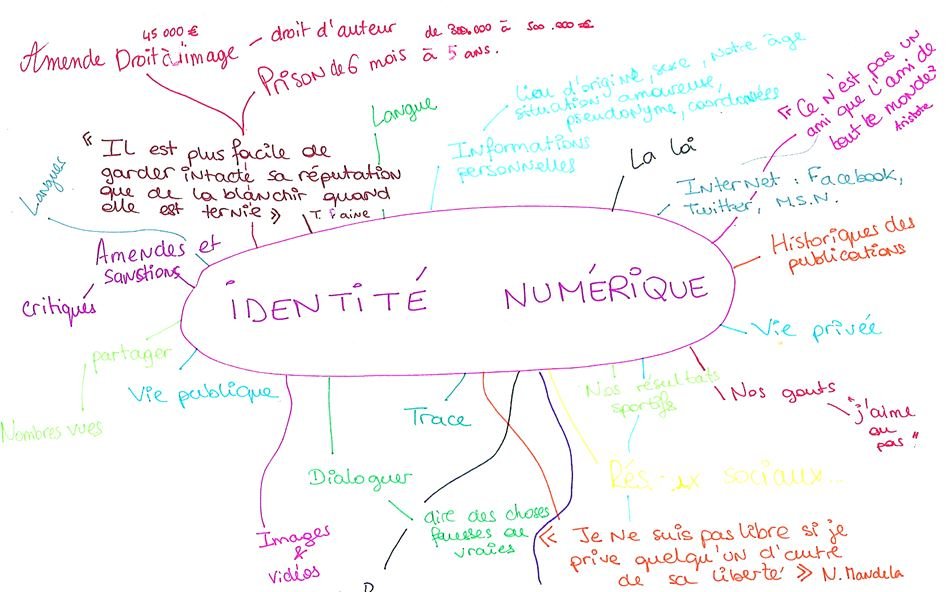 45 000 €
Amende Droit à l'image
droit d'auteur
de 300.000 à 500.000 €
Prison de 6 mois à 5 ans.
Langue
Lieu d'origine, sexe, Notre âge
situation amoureuse,
pseudonyme, coordonnées
Informations
personnelles
La loi
« Ce N'est pas un
ami que l'ami de
tout le monde »
Aristote
Langues
« Il est plus facile de
garder intacte sa réputation
que de la blanchir quand
elle est ternie »
T. Paine
Internet : Facebook,
Twitter, M.S.N.
Historiques des
publications
Amendes et
sanstions
critiques
IDENTITÉ NUMÉRIQUE
Vie privée
partager
Nombres vues
Vie publique
Trace
Nos résultats
sportifs
Nos gouts
"j'aime
ou
pas"
Dialoguer
dire des choses
fausses ou
vraies
sociaux...
Images
&
vidéos
« Je Ne suis pas libre si je
prive quelqu'un d'autre
de sa liberté » N. Mandela